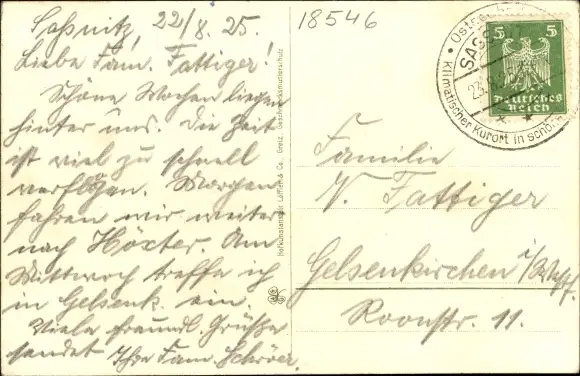 Saßnitz, 22/8. 25.
Liebe Fam. Fattiger!
Schöne Wochen liegen
hinter uns. Die Zeit
ist viel zu schnell
verflogen. Morgen
fahren wir weiter
nach Höxter. Am
Mittwoch treffe ich
in Gelsenk. ein.
Viele freundl. Grüße
sendet Ihre Fam. Schröer.
18546
Familie
V. Fattiger
Gelsenkirchen i/Westf.
Roonstr. 11.
Ostsee
SASSNITZ
23.8.25
Klimatischer Kurort in schön
5 5
Deutsches
Reich
Hofkunstanstalt Löffler & Co., Greiz. Geschmacksmusterschutz